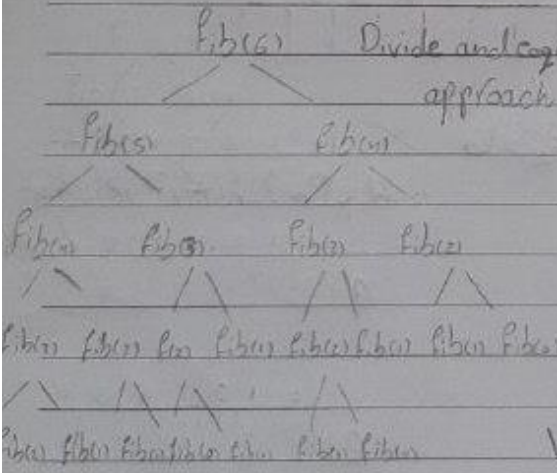 fib(6) Divide and
approach
fib(5) fib(4)
fib(4) fib(3) fib(3) fib(2)
fib(3) fib(2) f(2) fib(1) fib(2) fib(1) fib(1) fib(0)
fib(1) fib(1) fib(0)